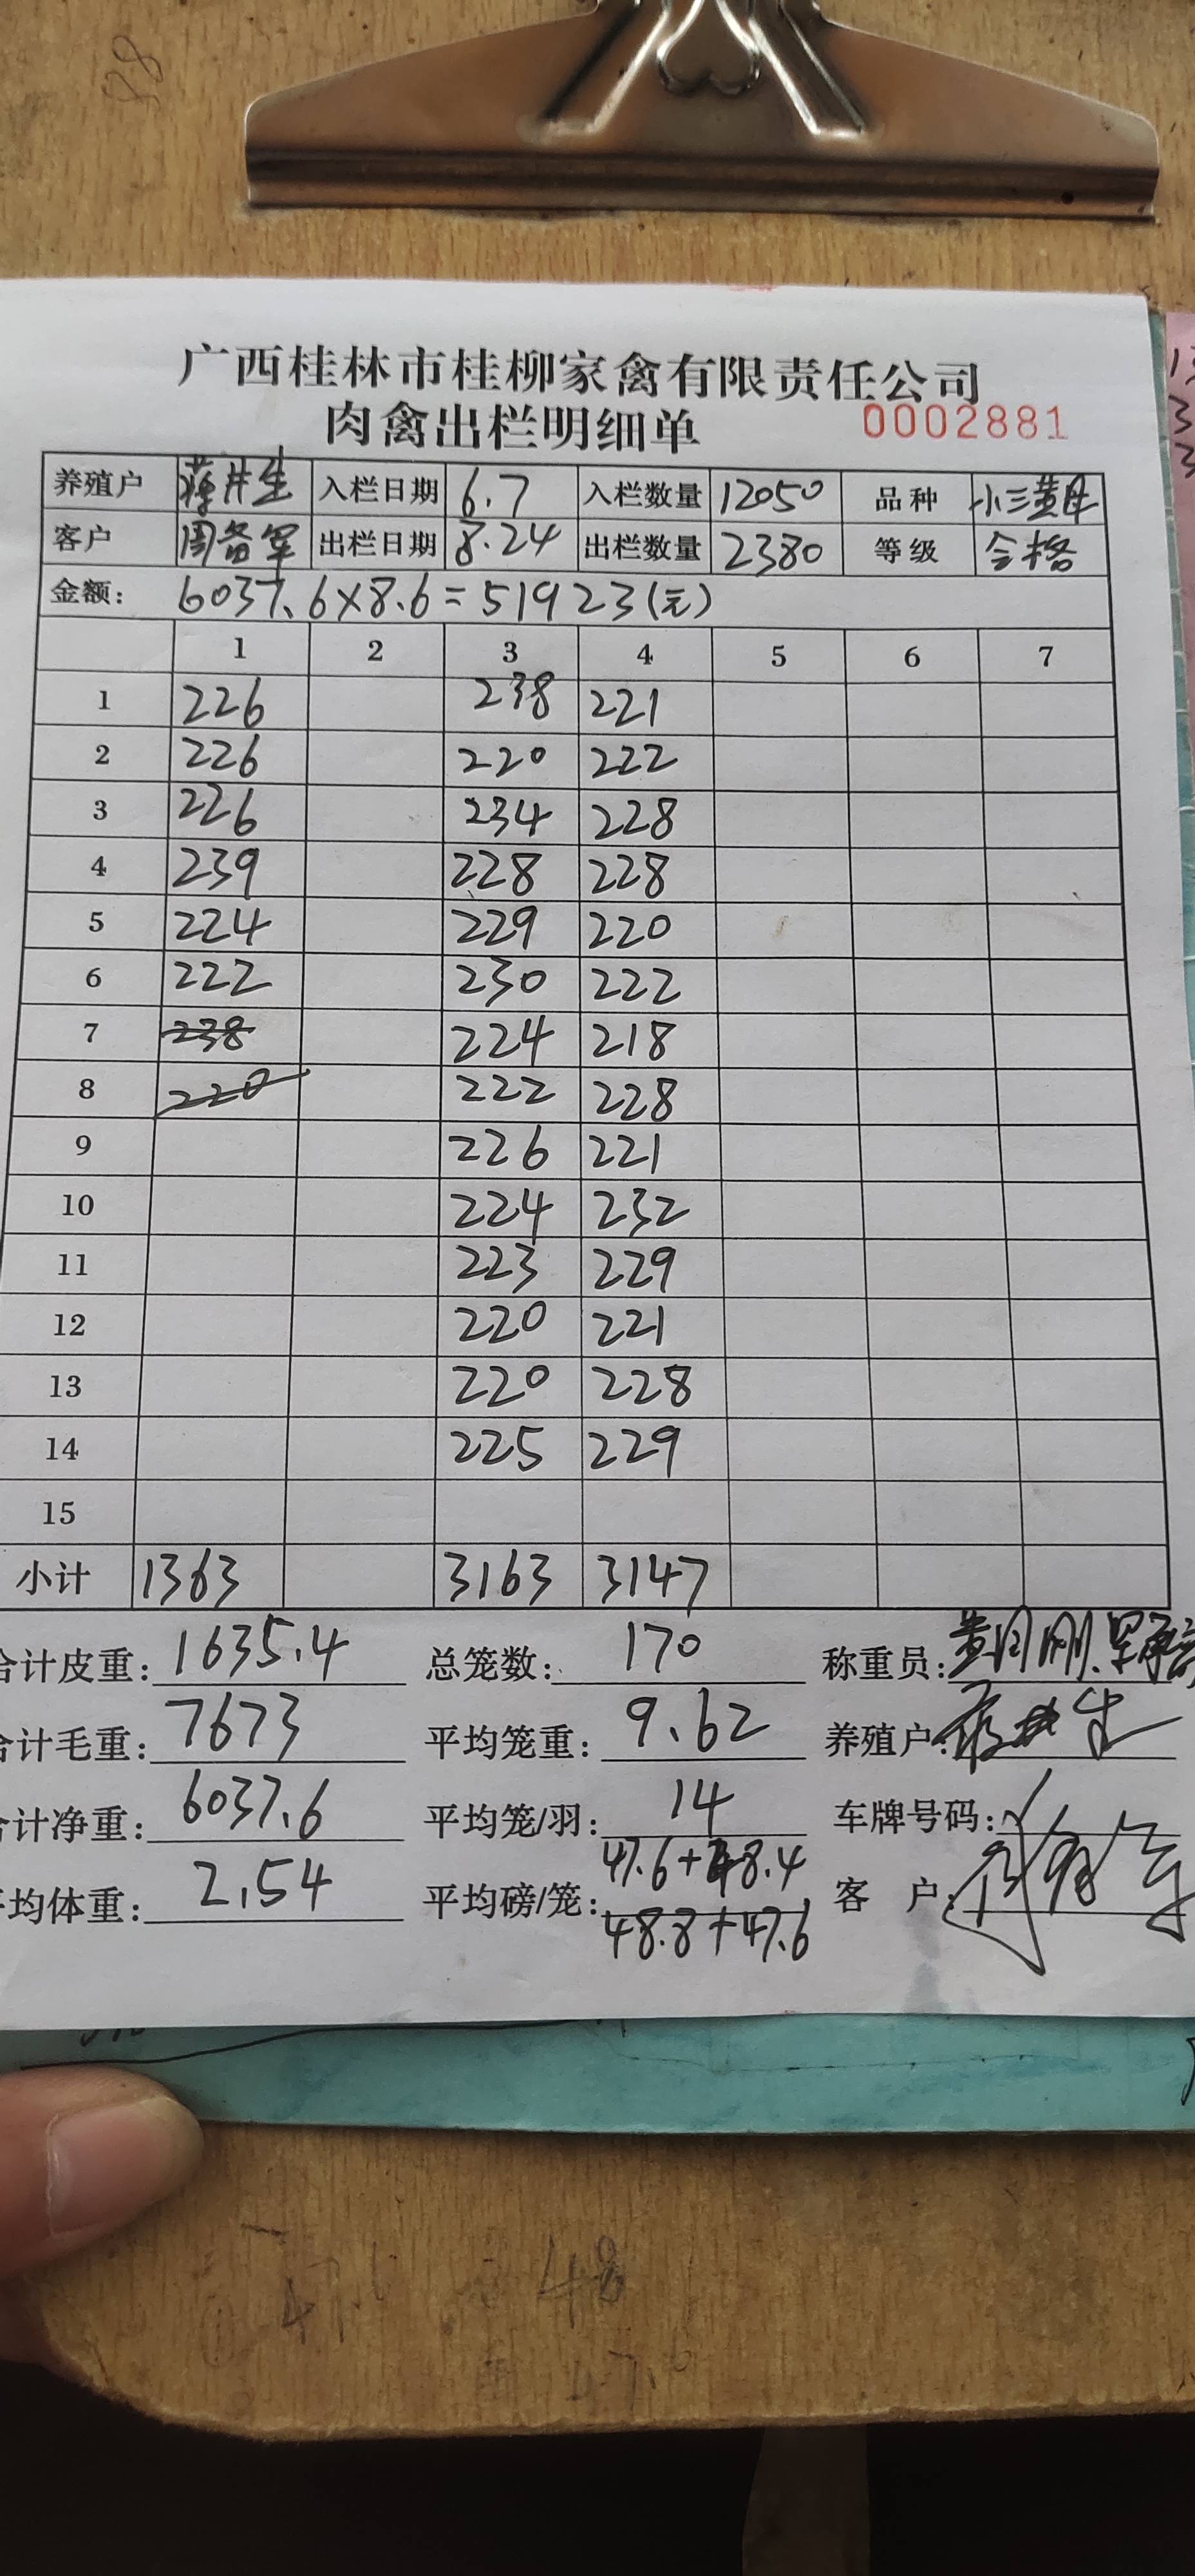 58
广西桂林市桂柳家禽有限责任公司
肉禽出栏明细单 0002881
养殖户 蒋井生 入栏日期 6.7 入栏数量 12050 品种 小三黄
客户 周备军 出栏日期 8.24 出栏数量 2380 等级 合格
金额: 6037.6×8.6=51923(元)
1 2 3 4 5 6 7
1 226 238 221
2 226 220 222
3 226 234 228
4 239 228 228
5 224 229 220
6 222 230 222
7 238 224 218
8 220 222 228
9 226 221
10 224 232
11 223 229
12 220 221
13 220 228
14 225 229
15
小计 1363 3163 3147
合计皮重: 1635.4 总笼数: 170 称重员: 黄月刚、
合计毛重: 7673 平均笼重: 9.62 养殖户:
合计净重: 6037.6 平均笼/羽: 14 车牌号码:
平均体重: 2.54 平均磅/笼: 47.6+48.4 客户:
48.8+47.6
48